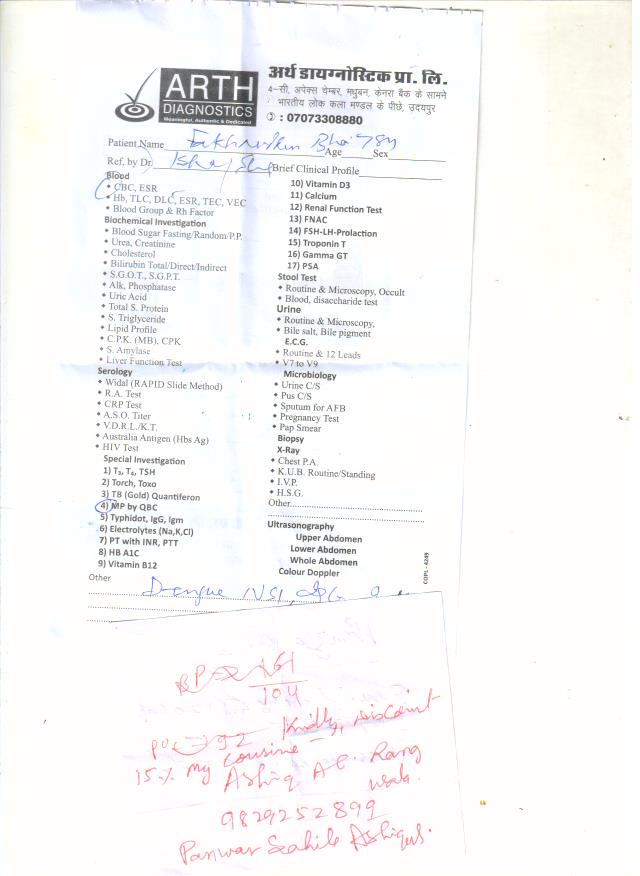 ARTH
DIAGNOSTICS
Meaningful, Authentic & Dedicated
अर्थ डायग्नोस्टिक प्रा. लि.
4-सी, अपेक्स चेम्बर, मधुबन, केनरा बैंक के सामने
भारतीय लोक कला मण्डल के पीछे, उदयपुर
: 07073308880
Patient Name Bhai 78y Age Sex
Ref, by Dr. Brief Clinical Profile
Blood
CBC, ESR
Hb, TLC, DLC, ESR, TEC, VEC
Blood Group & Rh Factor
Biochemical Investigation
Blood Sugar Fasting/Random/P.P.
Urea, Creatinine
Cholesterol
Bilirubin Total/Direct/Indirect
S.G.O.T., S.G.P.T.
Alk, Phosphatase
Uric Acid
Total S. Protein
S. Triglyceride
Lipid Profile
C.P.K. (MB), CPK
S. Amylase
Liver Function Test
Serology
Widal (RAPID Slide Method)
R.A. Test
CRP Test
A.S.O. Titer
V.D.R.L./K.T.
Australia Antigen (Hbs Ag)
HIV Test
Special Investigation
1) T₃, T₄, TSH
2) Torch, Toxo
3) TB (Gold) Quantiferon
4) MP by QBC
5) Typhidot, IgG, Igm
6) Electrolytes (Na,K,Cl)
7) PT with INR, PTT
8) HB A1C
9) Vitamin B12
10) Vitamin D3
11) Calcium
12) Renal Function Test
13) FNAC
14) FSH-LH-Prolaction
15) Troponin T
16) Gamma GT
17) PSA
Stool Test
Routine & Microscopy, Occult
Blood, disaccharide test
Urine
Routine & Microscopy,
Bile salt, Bile pigment
E.C.G.
Routine & 12 Leads
V7 to V9
Microbiology
Urine C/S
Pus C/S
Sputum for AFB
Pregnancy Test
Pap Smear
Biopsy
X-Ray
Chest P.A.
K.U.B. Routine/Standing
I.V.P.
H.S.G.
Other
Ultrasonography
Upper Abdomen
Lower Abdomen
Whole Abdomen
Colour Doppler
COPL - 4249
Other
Dengue NSI,
BP 161
104
92 Kindly, discount
15% my cousine
Ashiq Rang
wala.
9829252899
Panwar Sahib